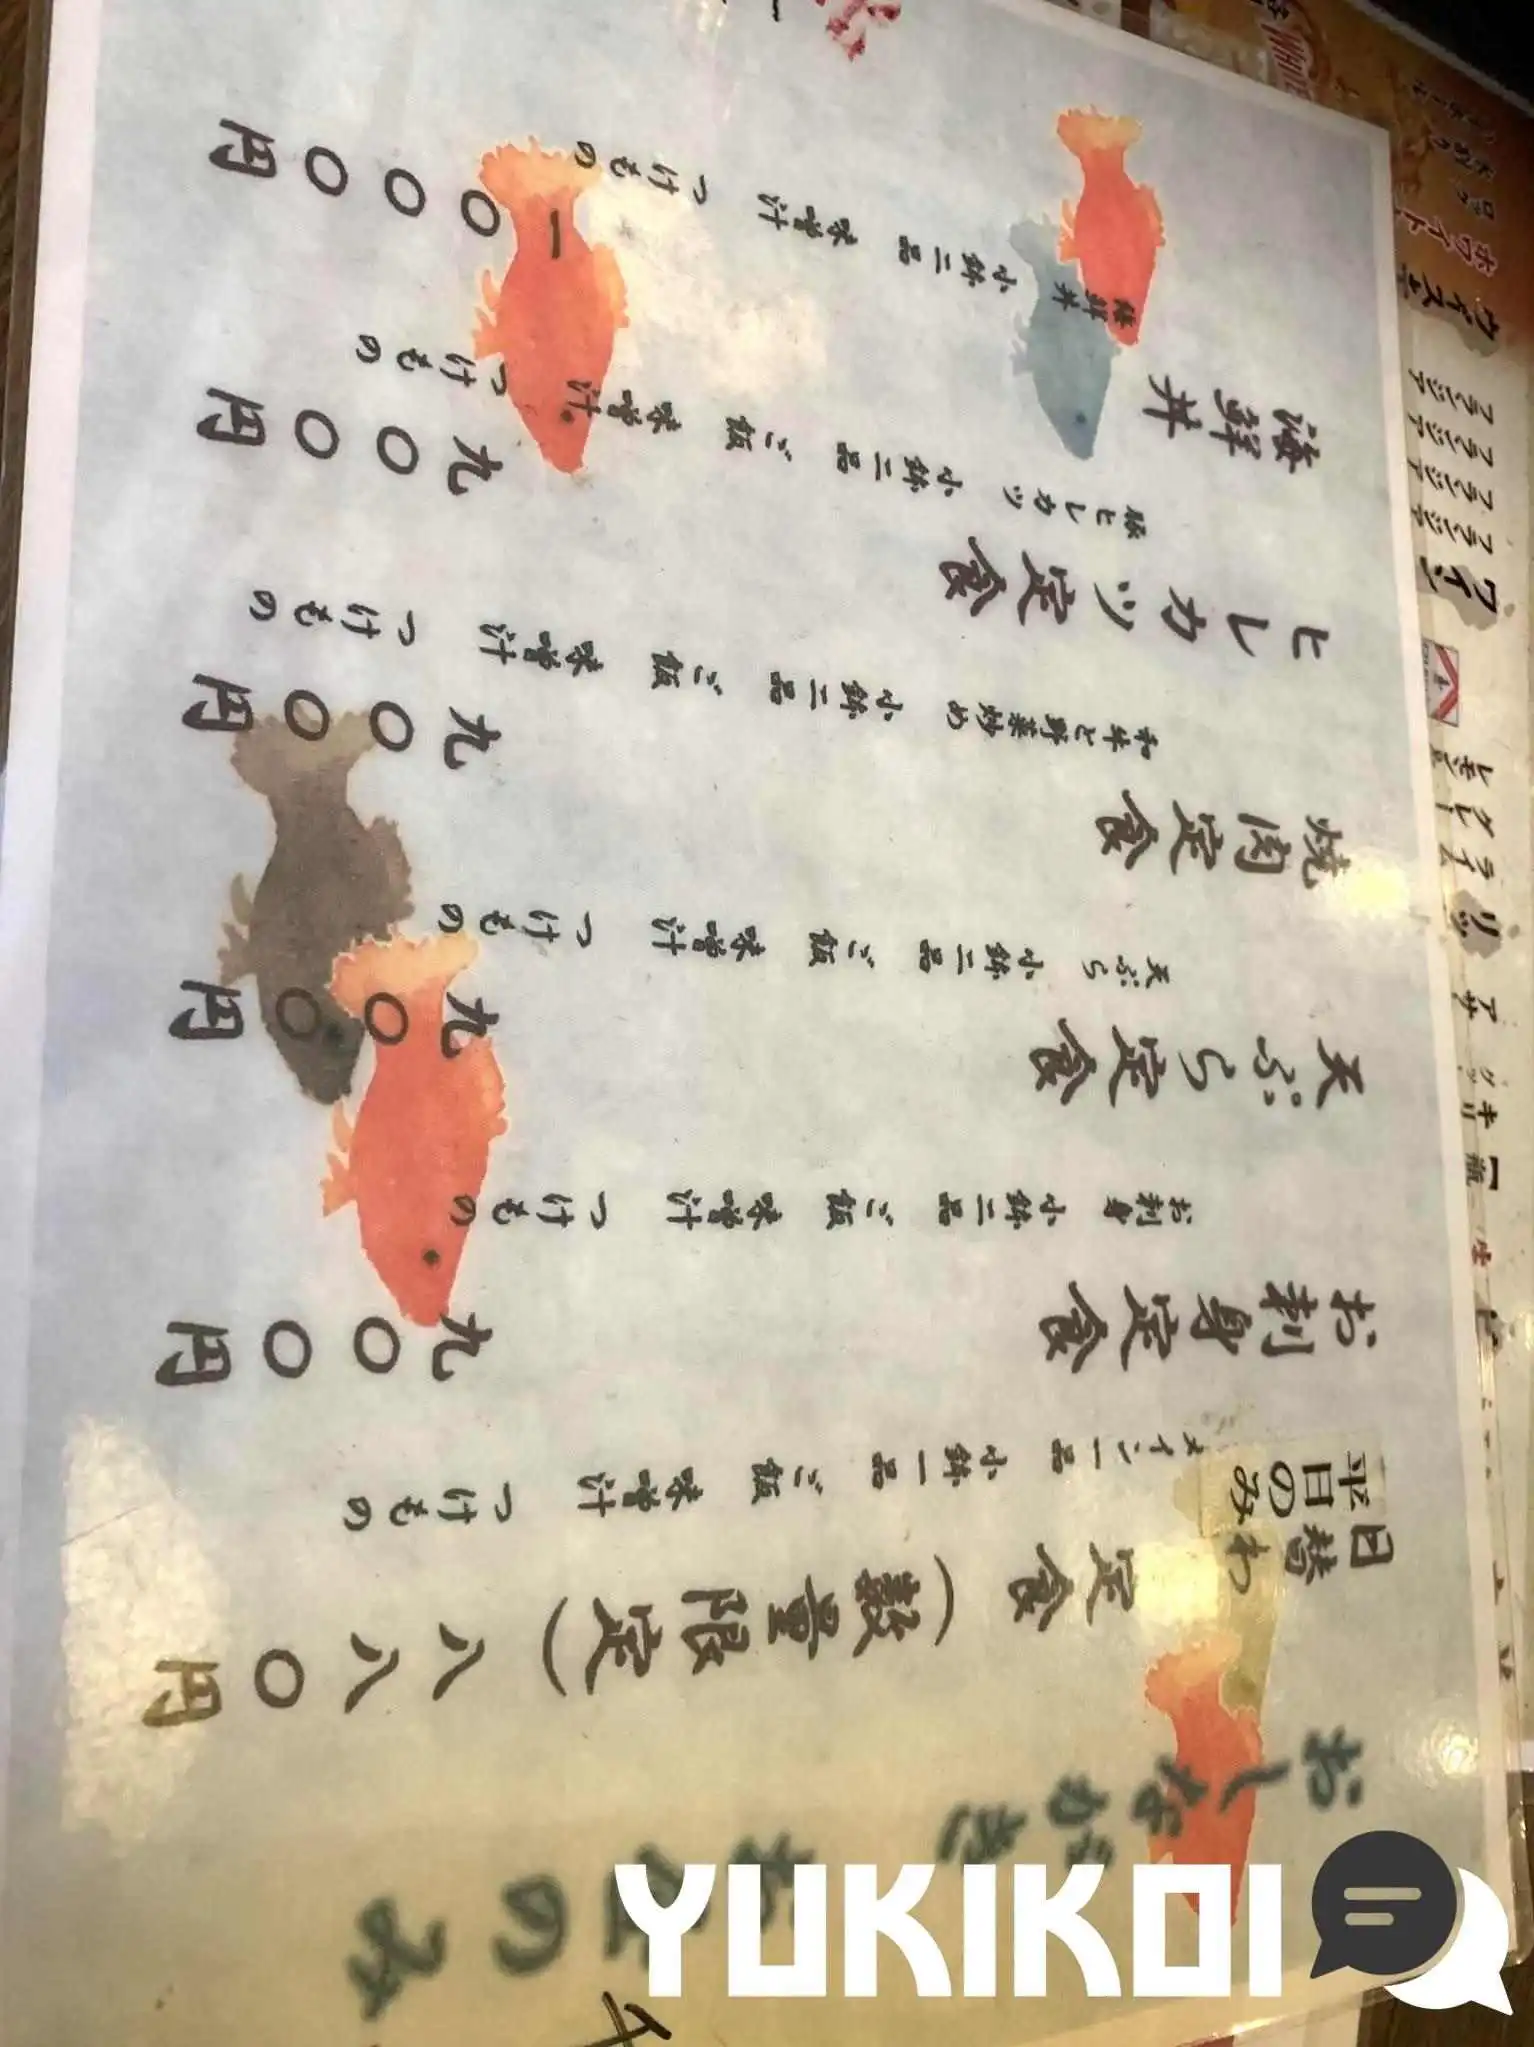 おしながき
平日のみ
日替わり定食（数量限定） 八八〇円
メイン一品 小鉢一品 ご飯 味噌汁 つけもの
お刺身定食 九〇〇円
お刺身 小鉢二品 ご飯 味噌汁 つけもの
天ぷら定食 九〇〇円
天ぷら 小鉢二品 ご飯 味噌汁 つけもの
焼肉定食 九〇〇円
和牛と野菜炒め 小鉢二品 ご飯 味噌汁 つけもの
ヒレカツ定食 九〇〇円
豚ヒレカツ 小鉢二品 ご飯 味噌汁 つけもの
海鮮丼 一〇〇〇円
海鮮丼 小鉢二品 味噌汁 つけもの
フランジア
フランジア
フランジア
フランジア
YUKIKOI